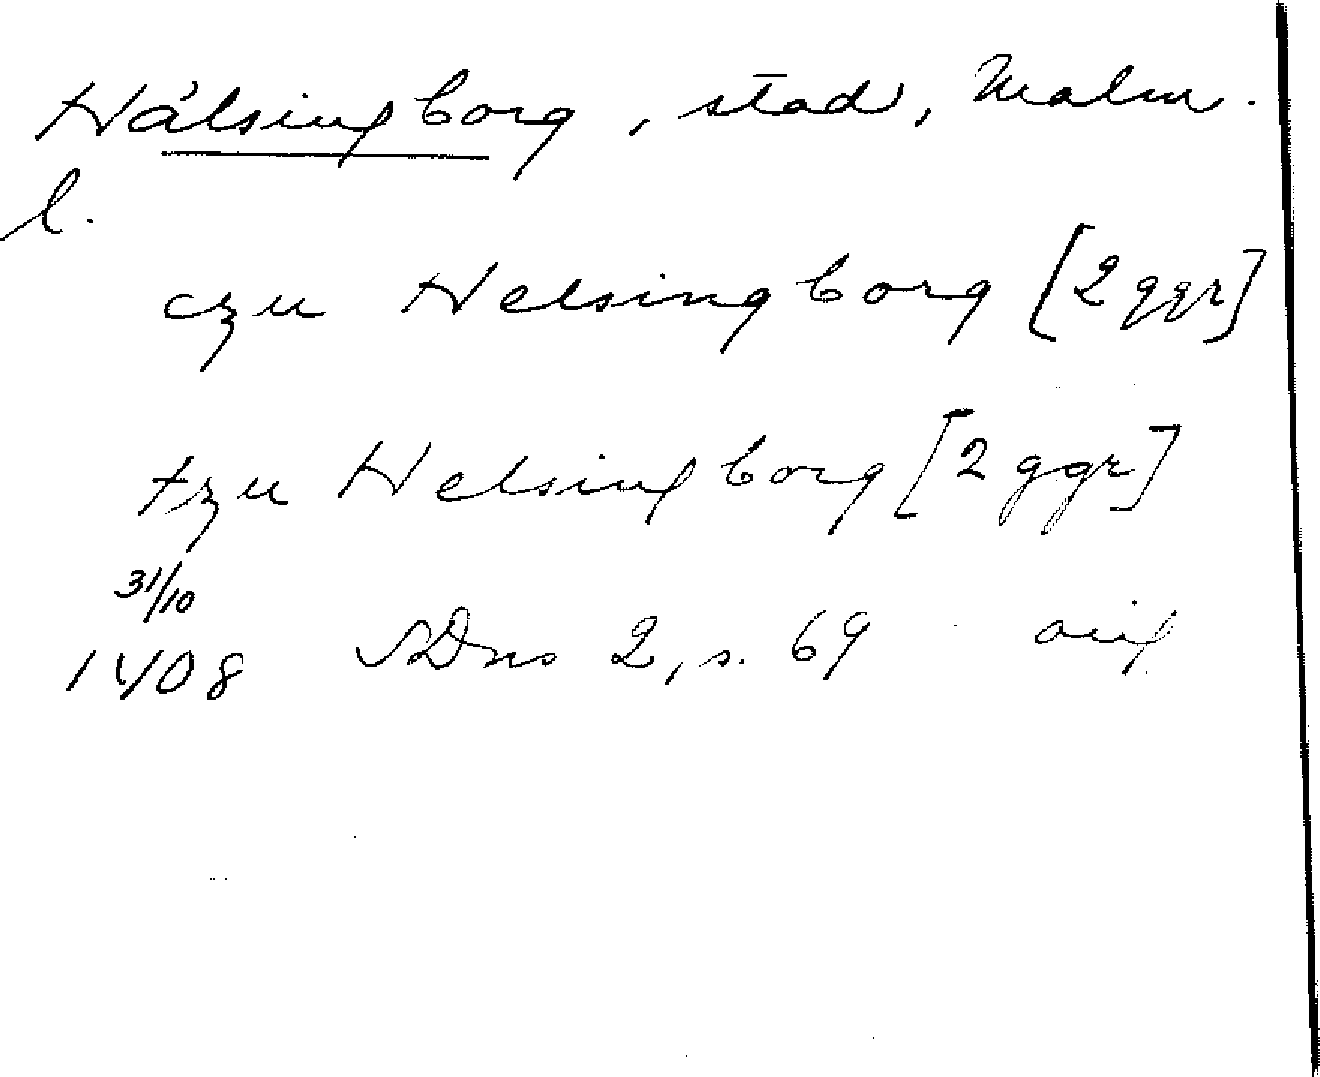 Hälsingborg, stad, Malm.
l.
czu Helsingborg [2 ggr]
tzu Helsingborg [2 ggr]
31/10
1408 SDns 2, s. 69 orig